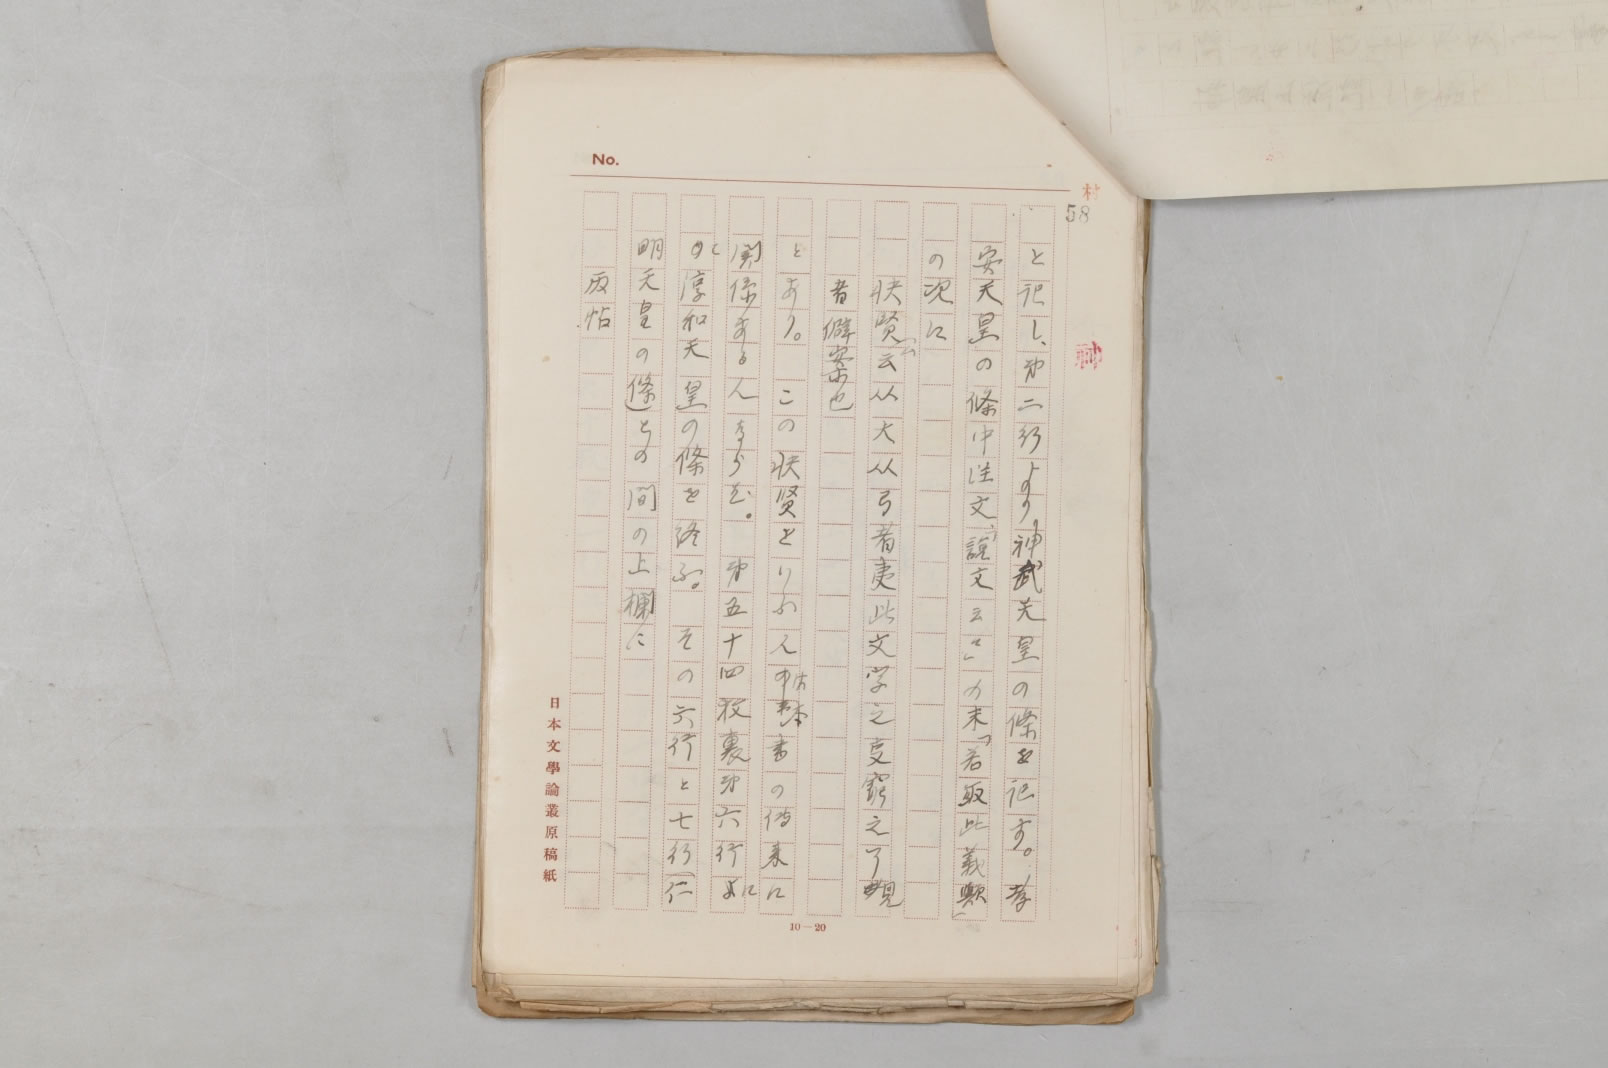 No.
58
と記し、第二行より、神武天皇の條を記す。孝
安天皇の條中注文、「説文云々」の末「若取此義歟」
の次に
快賢云从大从弓者夷此文字之變窮之了現
者僻案也
とあり。この快賢といふ人、古本の傳来に
関係ある人ならむ。第五十四枚裏第六行に
淳和天皇の條を終ふ。その六行と七行(仁
明天皇の條)との間の上欄に
反帖
日本文學論叢原稿紙
10—20